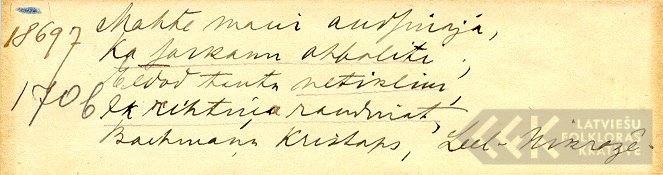 18697 Mahte mani audsinaja,
Ka sarkanu ahboliti;
Eedod tautu netiklim,
1706 Ik rihtina raudinat,
Bachmann Kristaps, Leel-
LATVIEŠU
FOLKLORAS
KRĀTUVE